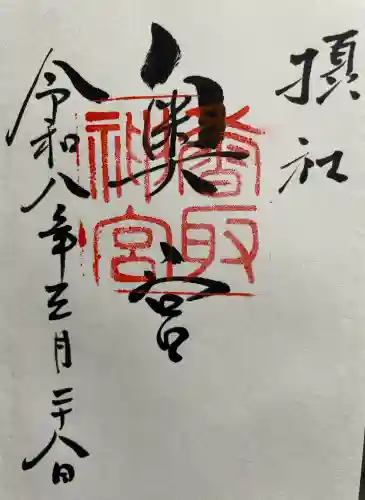 摂社
奥宮
香取神宮
令和八年三月二十八日